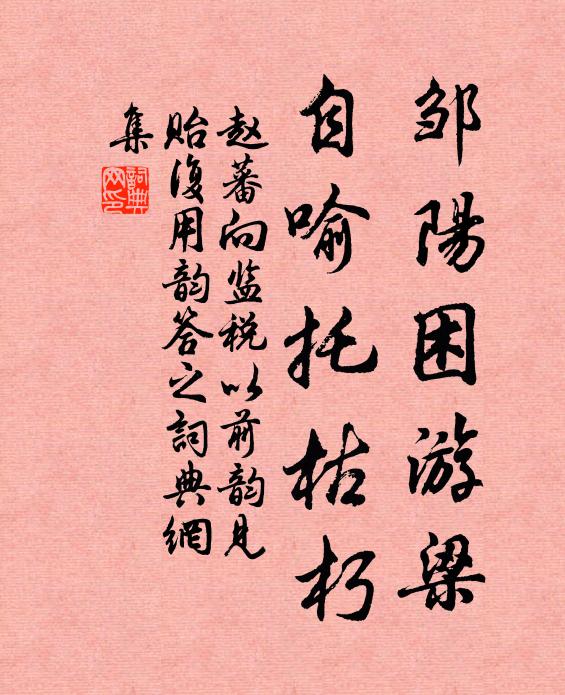 邹陽困游梁
自喻托枯朽
赵蕃向监税以前韵见
贻復用韵答之詞典網
集
詞典
网印